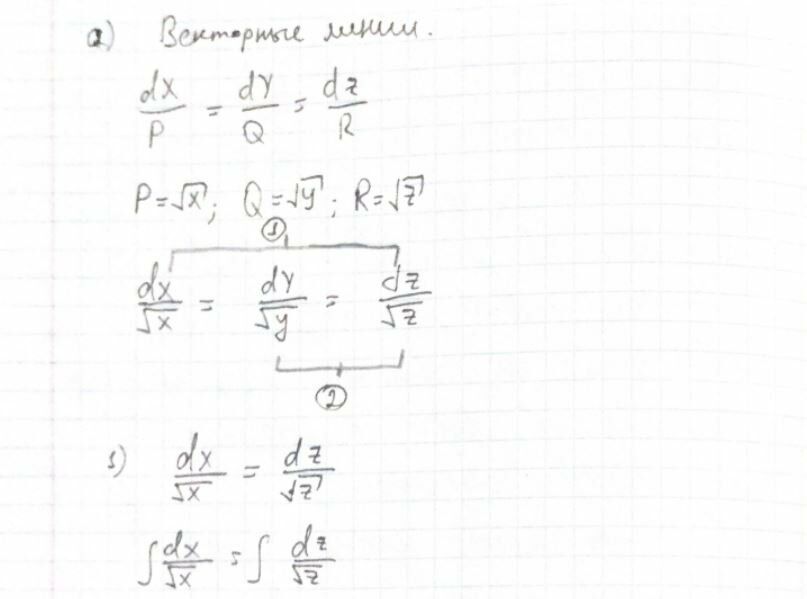 а) Векторные линии.
dx/P = dY/Q = dz/R
P=√x; Q=√y; R=√z
①
dx/√x = dY/√y = dz/√z
②
1) dx/√x = dz/√z
∫dx/√x = ∫ dz/√z